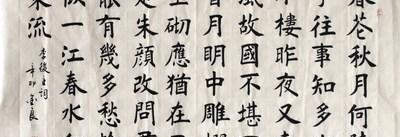 春花秋月何
了往事知多
樓昨夜又
風故國不堪
月明中雕
玉砌應猶在
是朱顏改問
能有幾多愁
似一江春水
東流
李後主詞
辛卯